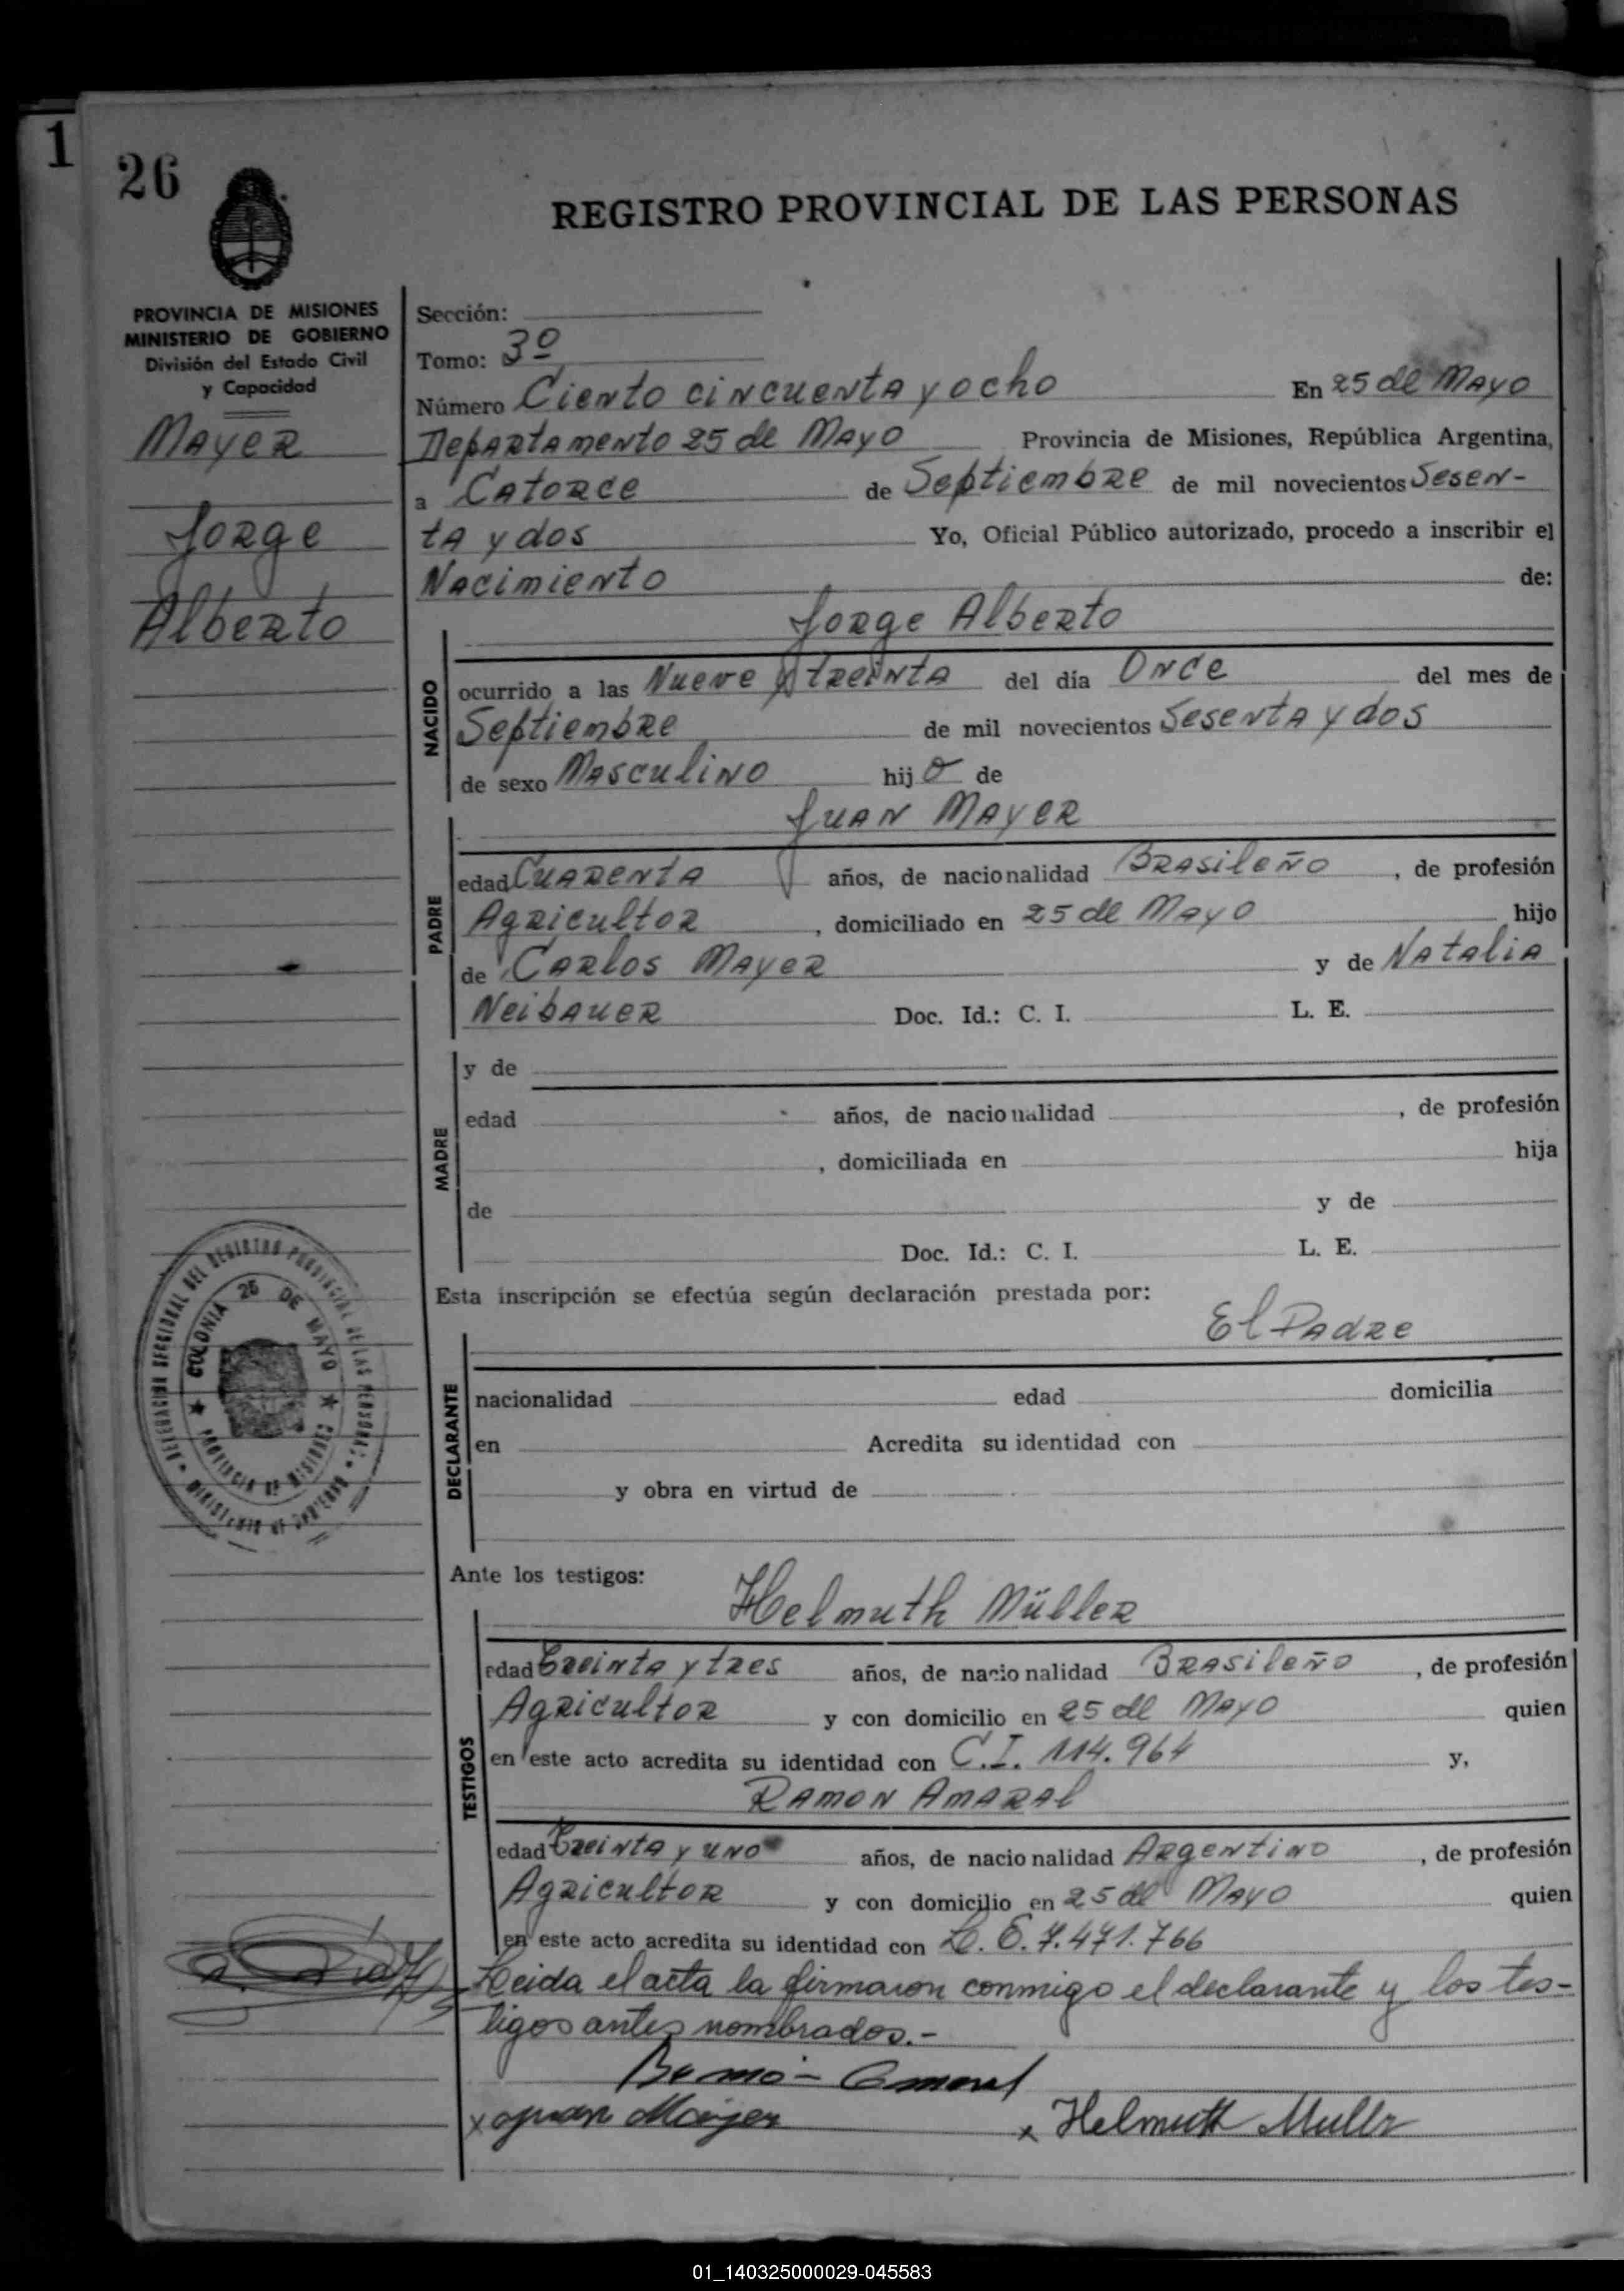 1
26
REGISTRO PROVINCIAL DE LAS PERSONAS
PROVINCIA DE MISIONES
MINISTERIO DE GOBIERNO
División del Estado Civil
y Capacidad
Mayer
Jorge
Alberto
Sección:
Tomo: 3º
Número Ciento cincuenta y ocho En 25 de Mayo
Departamento 25 de Mayo Provincia de Misiones, República Argentina,
a Catorce de Septiembre de mil novecientos Sesen-
ta y dos Yo, Oficial Público autorizado, procedo a inscribir el
Nacimiento de:
Jorge Alberto
NACIDO
ocurrido a las Nueve y treinta del día Once del mes de
Septiembre de mil novecientos Sesenta y dos
de sexo Masculino hijo de
Juan Mayer
PADRE
edad Cuarenta años, de nacionalidad Brasileño, de profesión
Agricultor, domiciliado en 25 de Mayo hijo
de Carlos Mayer y de Natalia
Neibauer Doc. Id.: C. I. L. E.
MADRE
y de
edad años, de nacionalidad , de profesión
, domiciliada en hija
de y de
Doc. Id.: C. I. L. E.
Esta inscripción se efectúa según declaración prestada por:
El Padre
DECLARANTE
nacionalidad edad domicilia
en Acredita su identidad con
y obra en virtud de
Ante los testigos:
Helmuth Müller
TESTIGOS
edad Treinta y tres años, de nacionalidad Brasileño, de profesión
Agricultor y con domicilio en 25 de Mayo quien
en este acto acredita su identidad con C.I. 114.964 y,
Ramon Amaral
edad Treinta y uno años, de nacionalidad Argentino, de profesión
Agricultor y con domicilio en 25 de Mayo quien
en este acto acredita su identidad con L. E. 7.471.766
Leida el acta la firmaron conmigo el declarante y los tes-
tigos antes nombrados.-
x Juan Mayer
x Helmuth Mullr
DELEGACION SECCIONAL DEL REGISTRO PROVINCIAL DE LAS PERSONAS
MINISTERIO DE GOBIERNO
COLONIA 25 DE MAYO
PROVINCIA DE MISIONES
01_140325000029-045583